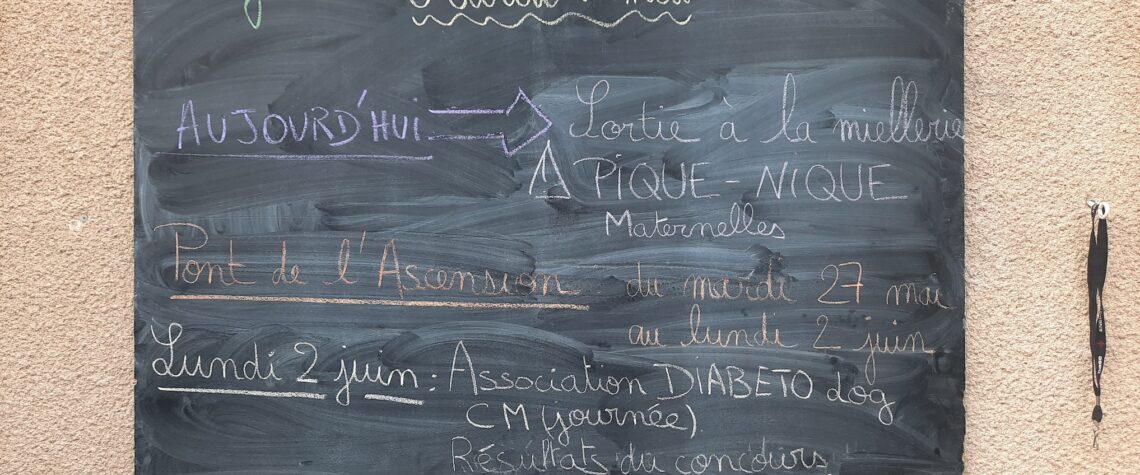 AUJOURD'HUI Sortie à la miellerie
! PIQUE-NIQUE
Maternelles
Pont de l'Ascension du mardi 27 mai
au lundi 2 juin
Lundi 2 juin : Association DIABETO dog
CM (journée)
Résultats du concours